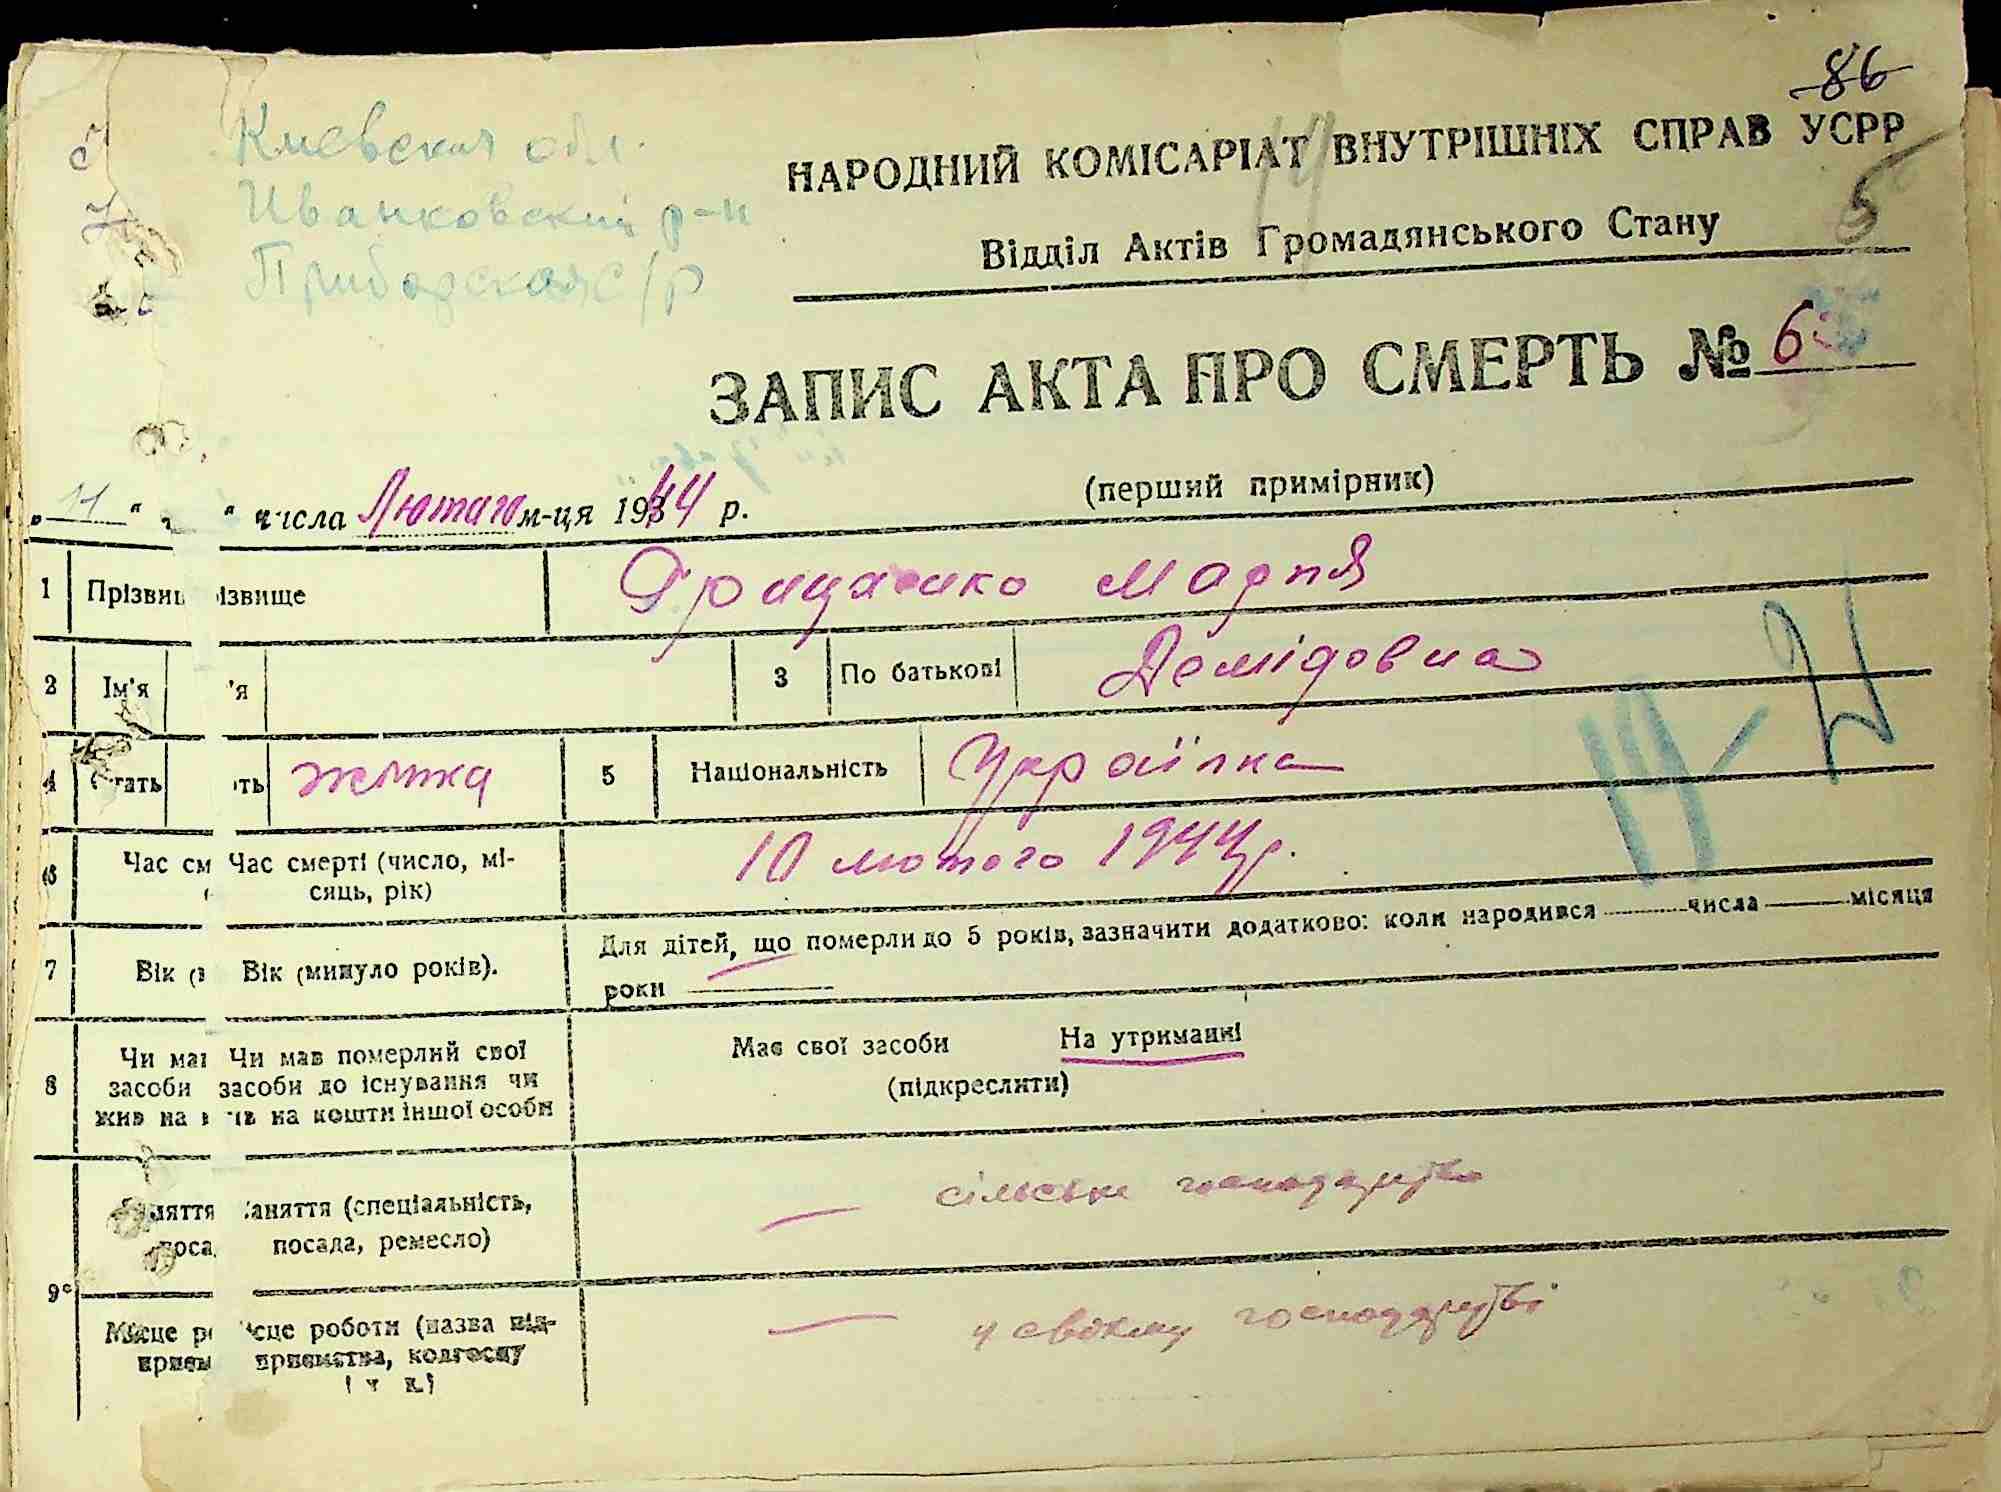 86
Киевская обл.
Иванковский р-н
Приборская с/р
НАРОДНИЙ КОМІСАРІАТ ВНУТРІШНІХ СПРАВ УСРР
14
5
Відділ Актів Громадянського Стану
ЗАПИС АКТА ПРО СМЕРТЬ № 6
(перший примірник)
„ 11 “ “ числа Лютаго м-ця 1944 р.
1 Прізвищ ізвище Грищенко Марія
2 Ім'я 'я 3 По батькові Демідовна
4 Стать ть жінка 5 Національність Українка
6 Час см Час смерті (число, мі-
сяць, рік) 10 лютого 1944 р.
7 Вік Вік (минуло років). Для дітей, що померли до 5 років, зазначити додатково: коли народився числа місяця
роки
8 Чи мав Чи мав померлий свої Має свої засоби На утриманні
засоби засоби до існування чи (підкреслити)
жив на ив на кошти іншої особи
няття аняття (спеціальність, — сільське господарство
поса посада, ремесло)
9
Місце р сце роботи (назва під- — у своєму господарстві
прием приємства, колгоспу
і т. п.)